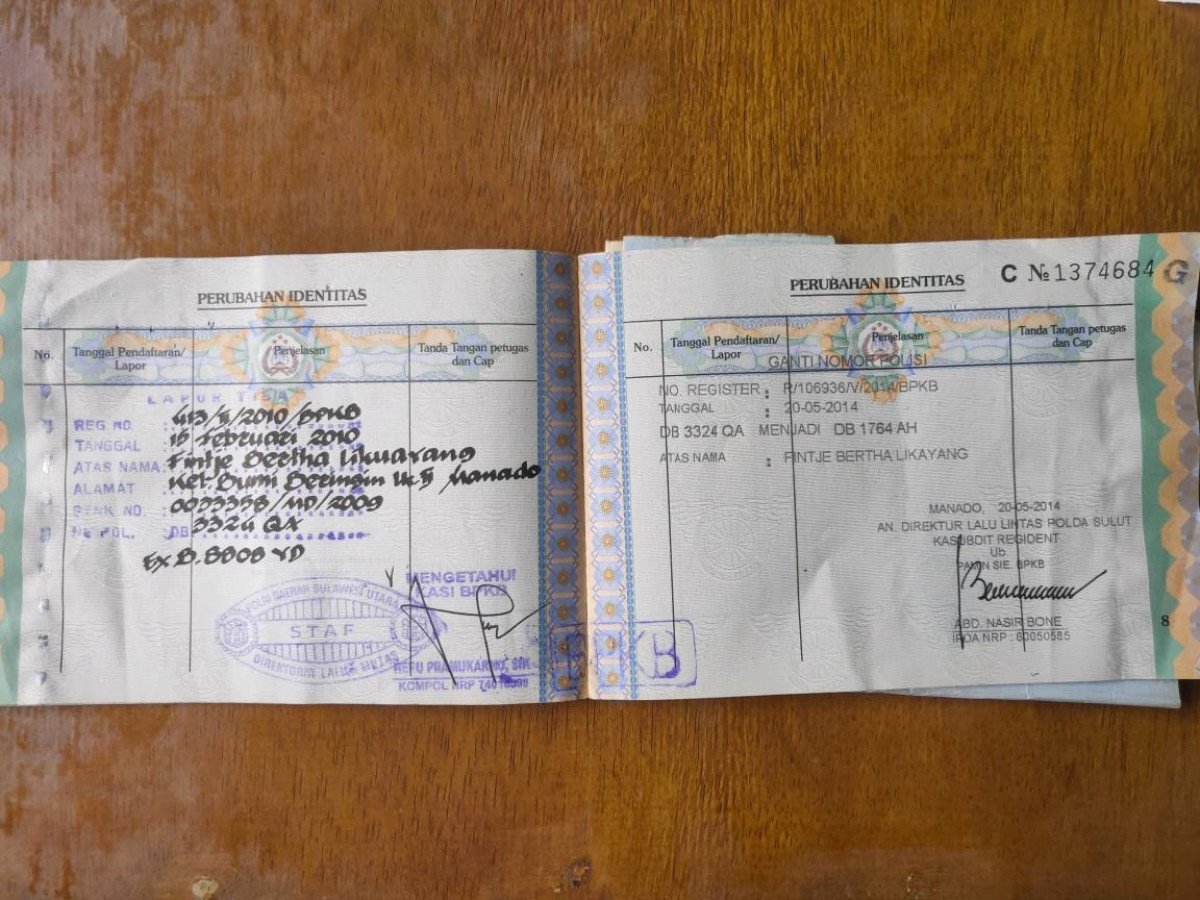 PERUBAHAN IDENTITAS
No.
Tanggal Pendaftaran/
Lapor
Penjelasan
Tanda Tangan petugas
dan Cap
LAPOR TIBA
REG. NO. : 413/II/2010/BPKB
TANGGAL : 15 Februari 2010
ATAS NAMA: Fintje Bertha Likuayang
ALAMAT : Kel. Bumi Beringin Lk. II Manado
STNK NO. : 0033358/MD/2009
No POL. : DB 3324 QA
Ex B. 8808 YD
MENGETAHUI
KASI BPKB
POLRI DAERAH SULAWESI UTARA
STAF
DIREKTORAT LALU LINTAS
PRAMUKARNO, SIK
KOMPOL NRP
PERUBAHAN IDENTITAS
C № 1374684 G
No.
Tanggal Pendaftaran/
Lapor
Penjelasan
Tanda Tangan petugas
dan Cap
GANTI NOMOR POLISI
NO. REGISTER : R/106936/V/2014/BPKB
TANGGAL : 20-05-2014
DB 3324 QA MENJADI DB 1764 AH
ATAS NAMA : FINTJE BERTHA LIKAYANG
MANADO, 20-05-2014
AN. DIREKTUR LALU LINTAS POLDA SULUT
KASUBDIT REGIDENT
Ub.
PAMIN SIE. BPKB
ABD. NASIR BONE
IPDA NRP : 60050585
8